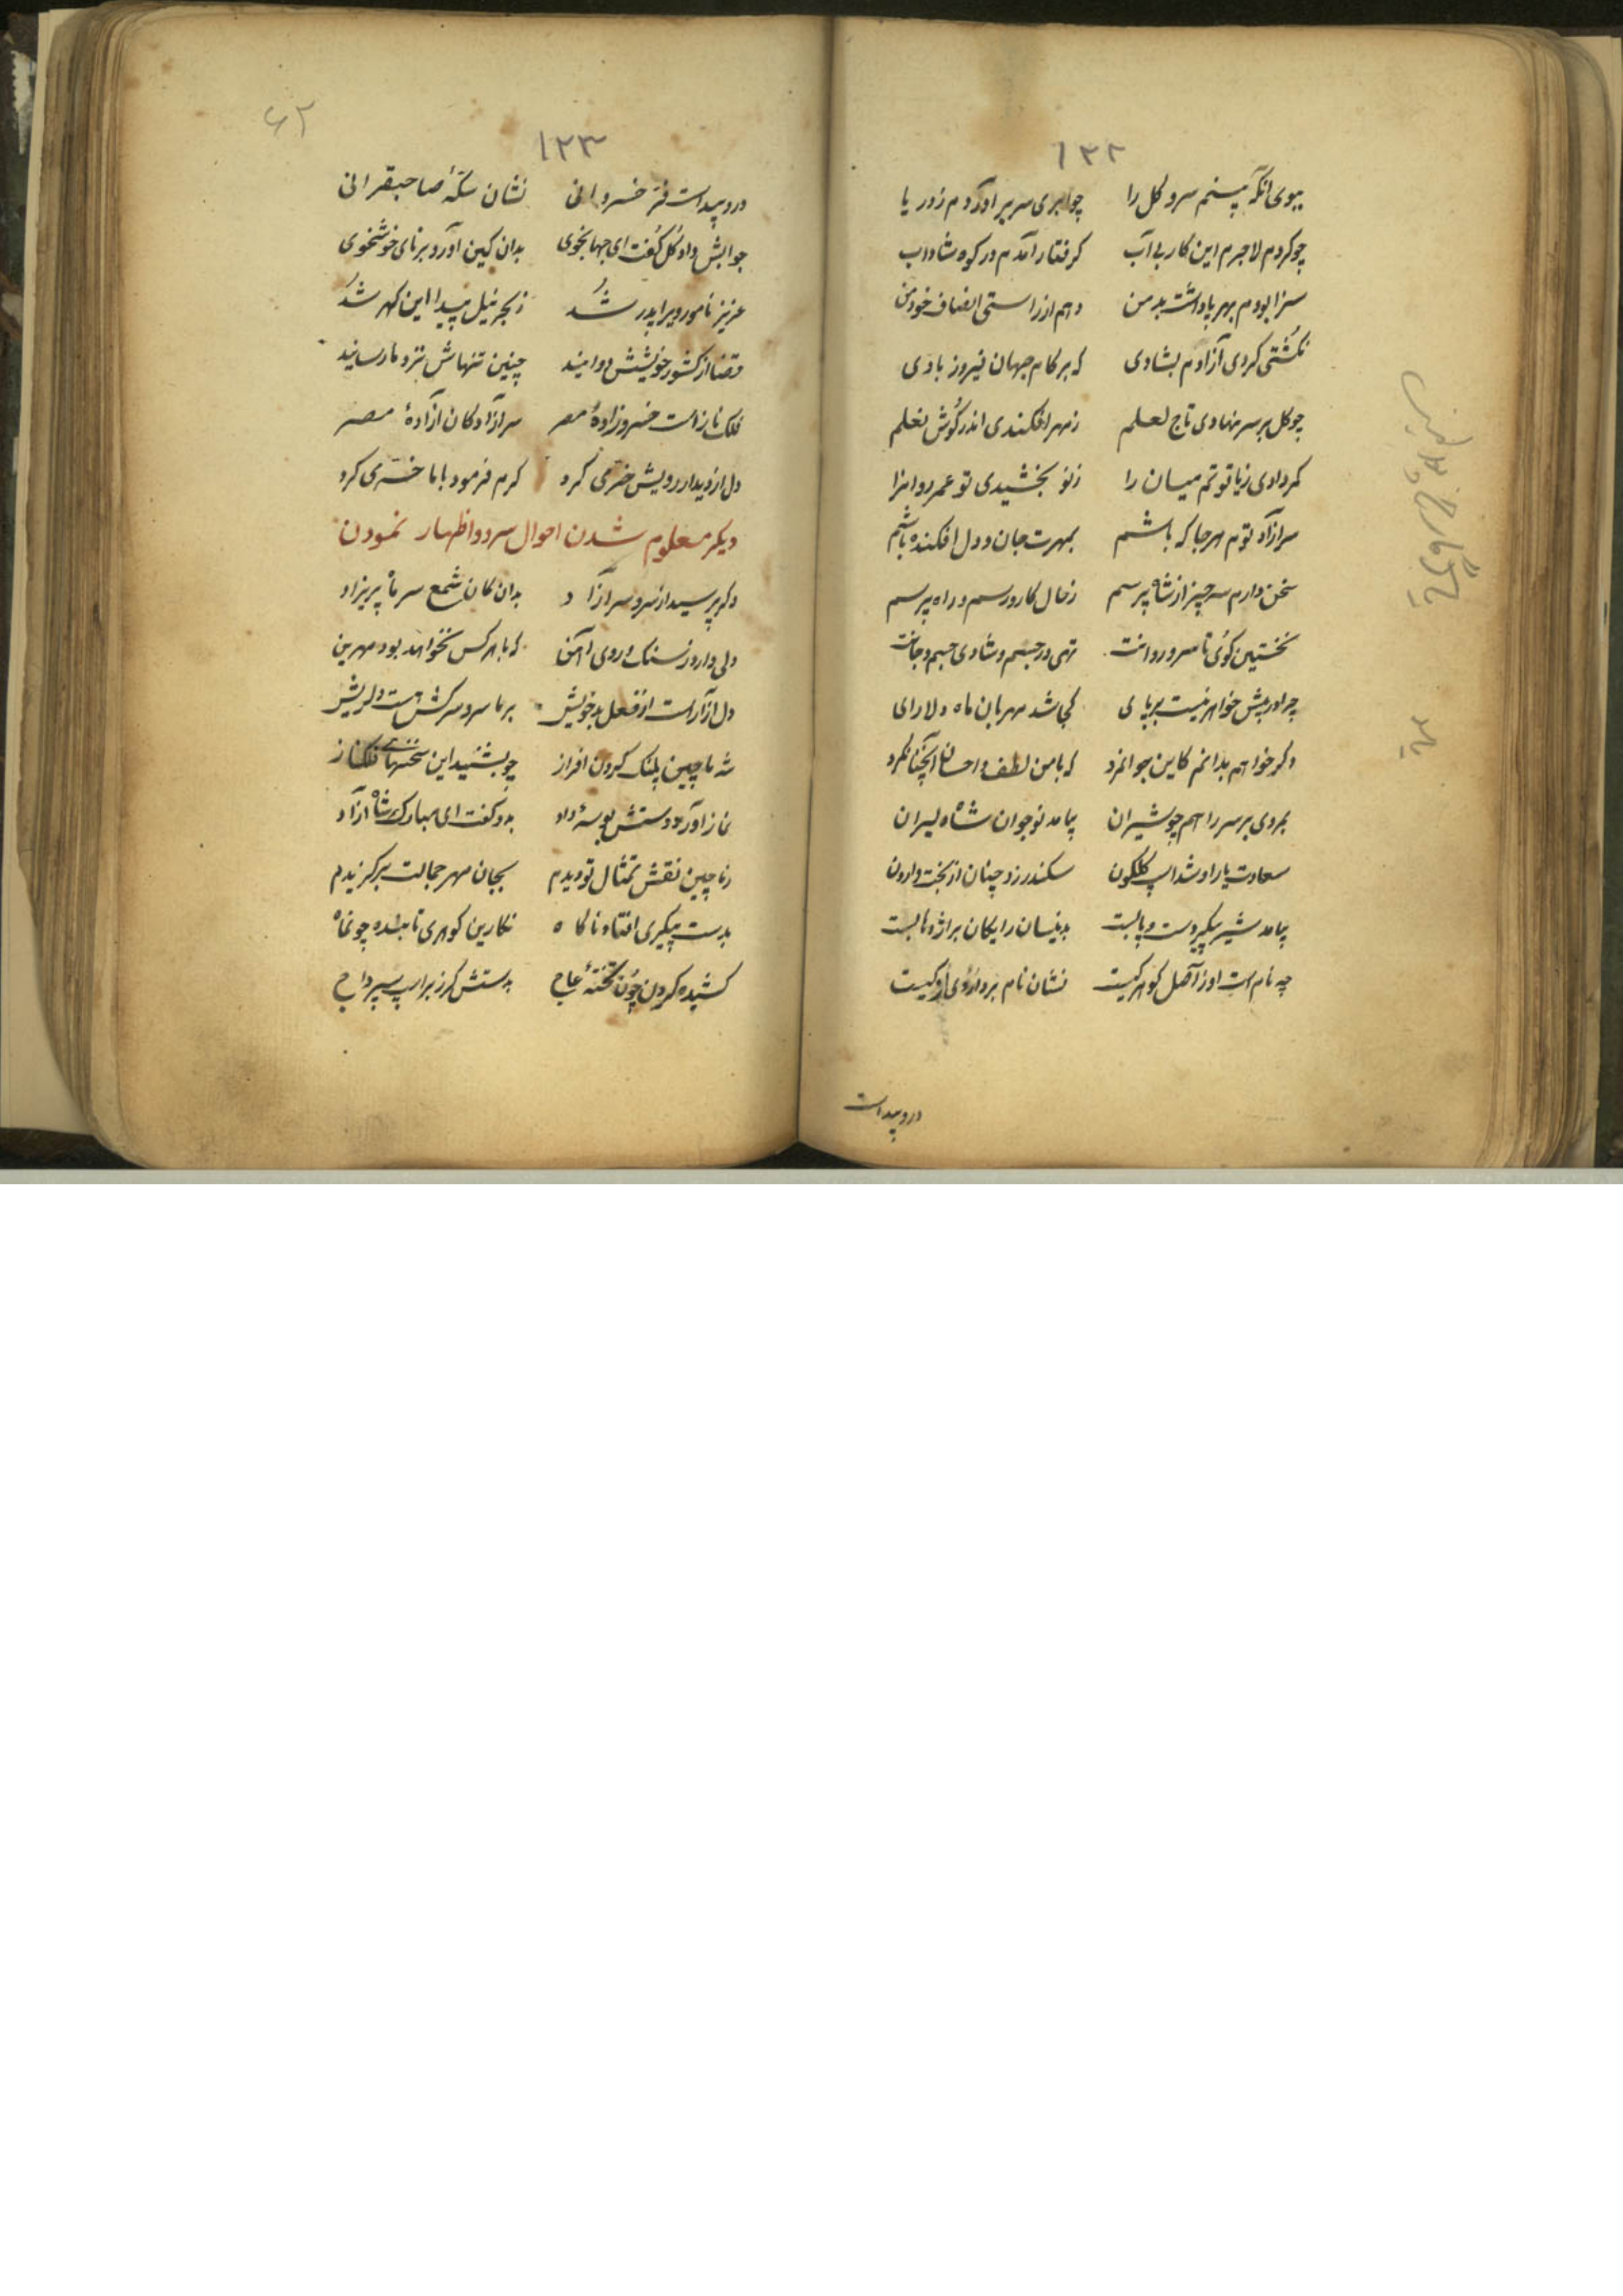 ۱۲۲
ببوی انکه بینم سرو کل را چو ابری سر بر اوردم ز دریا
چو کردم لاجرم این کار بی آب کرفتار آمدم در کوه شاداب
سزا بودم بهر پاداشت بد من دهم از راستی انصاف خود من
نکشتی کردی آزادم بشادی که بر کام جهان فیروز بادی
چو کل بر سر نهادی تاج لعلم ز مهر افکندی اندر کوش نعلم
کمر دادی ز یاقوتم میان را ز نو بخشیدی تو عمر روانرا
سرازاد توم هر جا که باشم بمهرت جان و دل افکنده باشم
سخن دارم سه چیز از شاه پرسم ز حال کار و رسم و راه پرسم
نخستین کوی تا سرو روانت تهی در جسم و شادی جسم و جانت
چرا در پیش خواهر نیست بر پای کجا شد مهربان ماه دلارای
دکر خواهم بدانم کاین جوانمرد که با من لطف و احسان آنچنان کرد
بمردی بر سر راهم چو شیران بیامد نوجوان شاه لیران
سعادت یار او شد اسپ کلکون سکندر زد چنان از بخت وارون
بیامد شیر پیکر دست و پا بست بدینسان رایکان بر اژدها بست
چه نام است او ز اصل کوهر کیست نشان نام بردار وی او کیست
درو پیداست
۱۲۳
۶۲
درو پیداست فر خسروانی نشان سکهٔ صاحبقرانی
جوابش داد کل کفت ای جهانجوی بدان کین آورد برنای خوشخوی
عزیز نامور ویرا پدر شد ز بحر نیل پیدا این کهر شد
قضا از کشور خویشش دوانید چنین تنهاش نزد ما رسانید
فلک نازاست خسروزادهٔ مصر سرازادکان ازادهٔ مصر
دل از دیدار رویش خرمی کرد کرم فرمود با ما خسری کرد
دیکر معلوم شدن احوال سرو و اظهار نمودن
دکر پرسید از سرو سرازاد بدان کان شمع سرما پریزاد
دلی دارد ز سنک و روی اهن که با هر کس نخواهد بود مهرین
دل ازار است از فعل بد خویش بر ما سرو سرکش هست دلریش
شه ماچین پلنک کردن افراز چو بشنید این سخنهای فلکناز
نماز اورد و دستش بوسه داد بدو کفت ای مبارک شاه ازاد
بماچین نقش تمثال تو دیدم بجان مهر جمالت بر کزیدم
بدست پیکری افتاد ناکاه نکارین کوهری تابنده چو نماه
کشیده کردن چون تختهٔ عاج بدستش کرز بر اسپ سپر داج